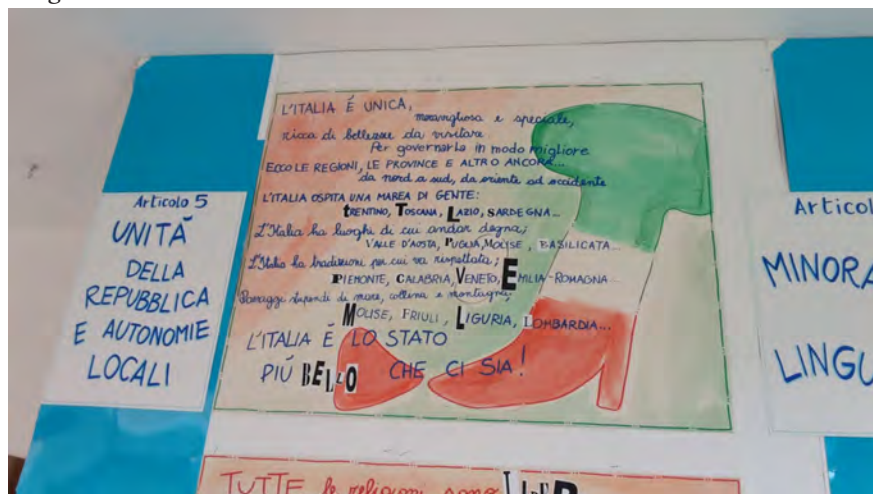 Articolo 5
UNITÀ
DELLA
REPUBBLICA
E AUTONOMIE
LOCALI
L'ITALIA É UNICA,
meravigliosa e speciale,
ricca di bellezze da visitare
Per governarla in modo migliore
ECCO LE REGIONI, LE PROVINCE E ALTRO ANCORA...
da nord a sud, da oriente ad occidente
L'ITALIA OSPITA UNA MAREA DI GENTE:
TRENTINO, TOSCANA, LAZIO, SARDEGNA...
L'Italia ha luoghi di cui andar degna;
VALLE D'AOSTA, PUGLIA, MOLISE, BASILICATA...
L'Italia ha tradizioni per cui va rispettata;
PIEMONTE, CALABRIA, VENETO, EMILIA-ROMAGNA...
Paesaggi stupendi di mare, collina e montagna;
MOLISE, FRIULI, LIGURIA, LOMBARDIA...
L'ITALIA É LO STATO
PIÚ BELLO CHE CI SIA!
Articol
MINORA
LINGU
TUTTE le religioni sono